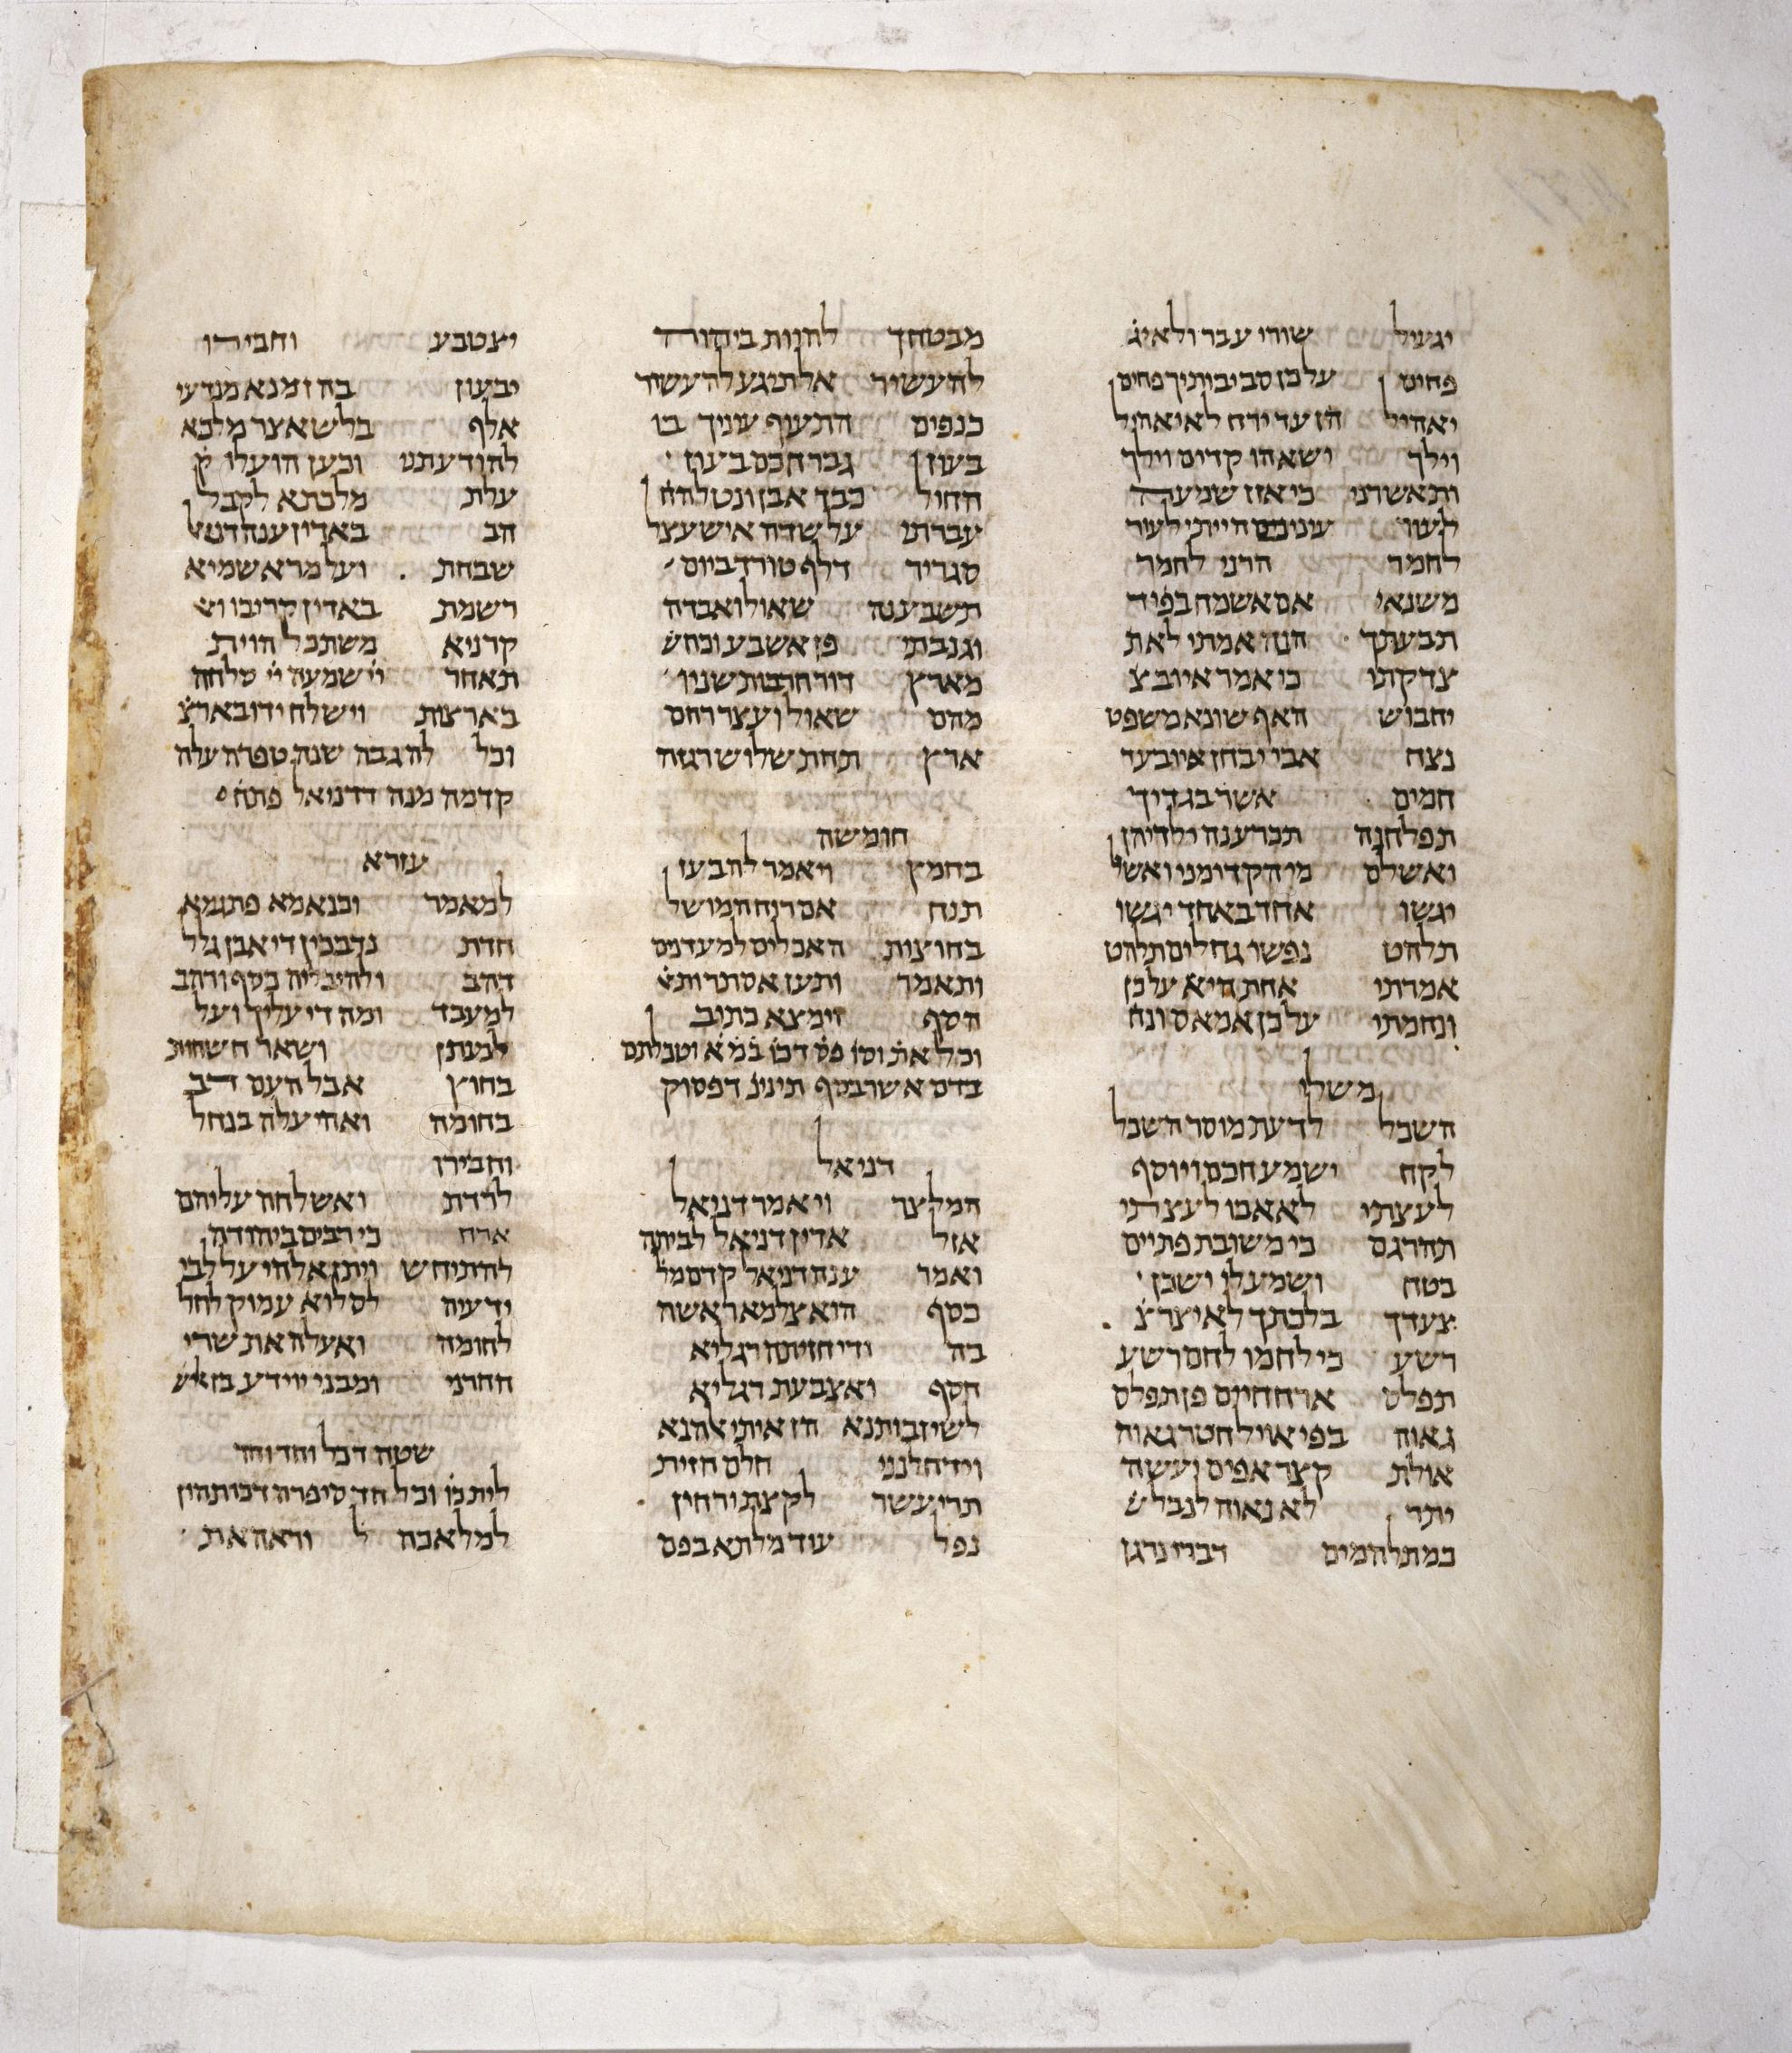 יגעיל שורו עבר ולא יג
פחים על כן סביבותיך פחים
יאהיל הן עד ירח ולא יאהיל
וילך ישאהו קדים וילך
ותאשרני כי אזן שמעה
לעור עינים הייתי לעור
לחמר הרני לחמר
משנאי אם אשמח בפיד
תבעתך הנה אמתי לא ת
צדקתי כי אמר איוב צ
יחבוש האף שונא משפט
נצח אבי יבחן איוב עד
חמים אשר בגדיך
תפלחנה תכרענה ילדיהן
ואשלם מי הקדימני ואשל
יגשו אחד באחד יגשו
תלהט נפשו גחלים תלהט
אמרתי אחת היא על כן
ונחמתי על כן אמאס ונח
משלי
השכל לדעת מוסר השכל
לקח ישמע חכם ויוסף
לעצתי לא אבו לעצתי
תהרגם כי משובת פתיים
בטח ושמע לי ישכן
צעדך בלכתך לא יצר צ
רשע כי לחמו לחם רשע
תפלס ארח חיים פן תפלס
גאוה בפי אויל חטר גאוה
אולת קצר אפים יעשה
יתר לא נאוה לנבל ש
כמתלהמים דברי נרגן
מבטחך להיות ביהוה
להעשיר אל תיגע להעשיר
כנפים התעיף עיניך בו
בעוז גבר חכם בעוז
החול כבד אבן ונטל הח
עברתי על שדה איש עצל
סגריר דלף טורד ביום
תשבענה שאול ואבדה
וגנבתי פן אשבע וכחש
מארץ דור חרבות שניו
מהם שאול ועצר רחם
ארץ תחת שלוש רגזה
חומשה
בחמץ ויאמר לה בעז
תנח אם רוח המושל
בחוצות האכלים למעדנים
ותאמר ותען אסתר ות
הסף וימצא כתוב
וכל את וסו פס דכו במא וטבלתם
בדם אשר בסף תינינ דפסוק
דניאל
המלצר ויאמר דניאל
אזל אדין דניאל לביתה
ואמר ענה דניאל קדם מל
כסף הוא צלמא ראשה
בה ודי חזיתה רגליא
חסף ואצבעת רגליא
לשיזבותנא הן איתי אלהנא
וידחלנני חלם חזית
תרי עשר לקצת ירחין
נפל עוד מלתא בפם
יצטבע וחבירו
יבעון בה זמנא מנדעי
אלף בלשאצר מלכא
להודעתני וכען העלו ק
עלת מלכתא לקבל
הב באדין ענה דני
שבחת ועל מרא שמיא
רשמת באדין קריבו וא
קרניא משתכל הוית
תאחר יי שמעה יי סלחה
בארצות וישלח ידו בארצ
וכל להגבה שנה טפרה עלה
קדמה מנה דדניאל פתח
עזרא
למאמר וכנאמא פתגמא
חדת נדבכין די אבן גלל
דהב ולהיבליה כסף ודהב
למעבד ומה די עליך ועל
למנתן ושאר חשחות
בחוץ אבל העם רב
בחומה ואהי עלה בנחל
וחבירו
לרדת ואשלחה עליהם
ארח כי רבים ביהודה
להתיחש ויתן אלהי על לבי
ידעיה לסלוא עמוק לחל
לחומה ואעלה את שרי
החרני ומבני יוידע בן אלש
שטה דכל וחד וחד
לית כו וכל חד סיפרה דכותהון
למלאכה ל וראה את